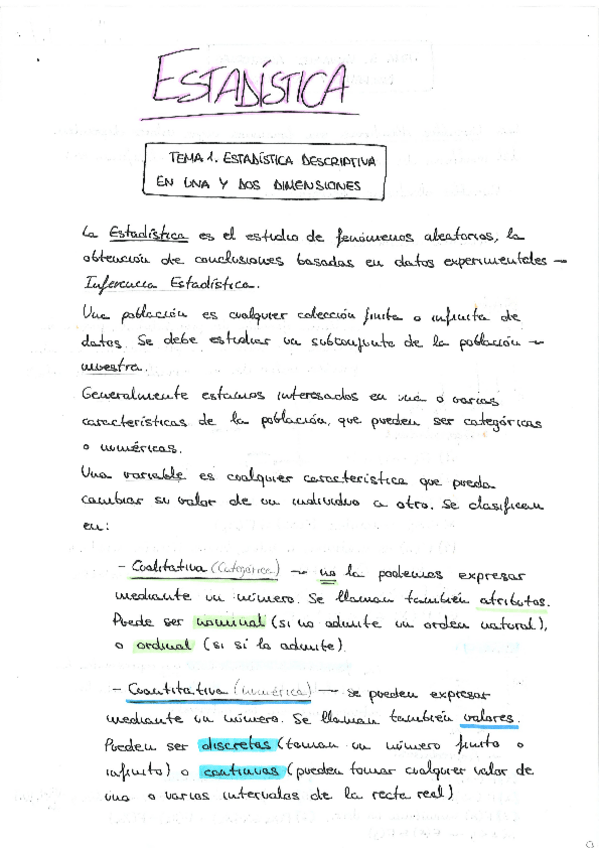 ESTADÍSTICA
TEMA 1. ESTADÍSTICA DESCRIPTIVA
EN UNA Y DOS DIMENSIONES
La Estadística es el estudio de fenómenos aleatorios, la
obtención de conclusiones basadas en datos experimentales →
Inferencia Estadística.
Una población es cualquier colección finita o infinita de
datos. Se debe estudiar un subconjunto de la población →
muestra.
Generalmente estamos interesados en una o varias
características de la población, que pueden ser categóricas
o numéricas.
Una variable es cualquier característica que pueda
cambiar su valor de un individuo a otro. Se clasifican
en:
- Cualitativa (Categórica) → no la podemos expresar
mediante un número. Se llaman también atributos.
Puede ser nominal (si no admite un orden natural),
o ordinal (si si lo admite).
- Cuantitativa (numérica) → se pueden expresar
mediante un número. Se llaman también valores.
Pueden ser discretas (toman un número finito o
infinito) o continuas (pueden tomar cualquier valor de
uno o varios intervalos de la recta real)